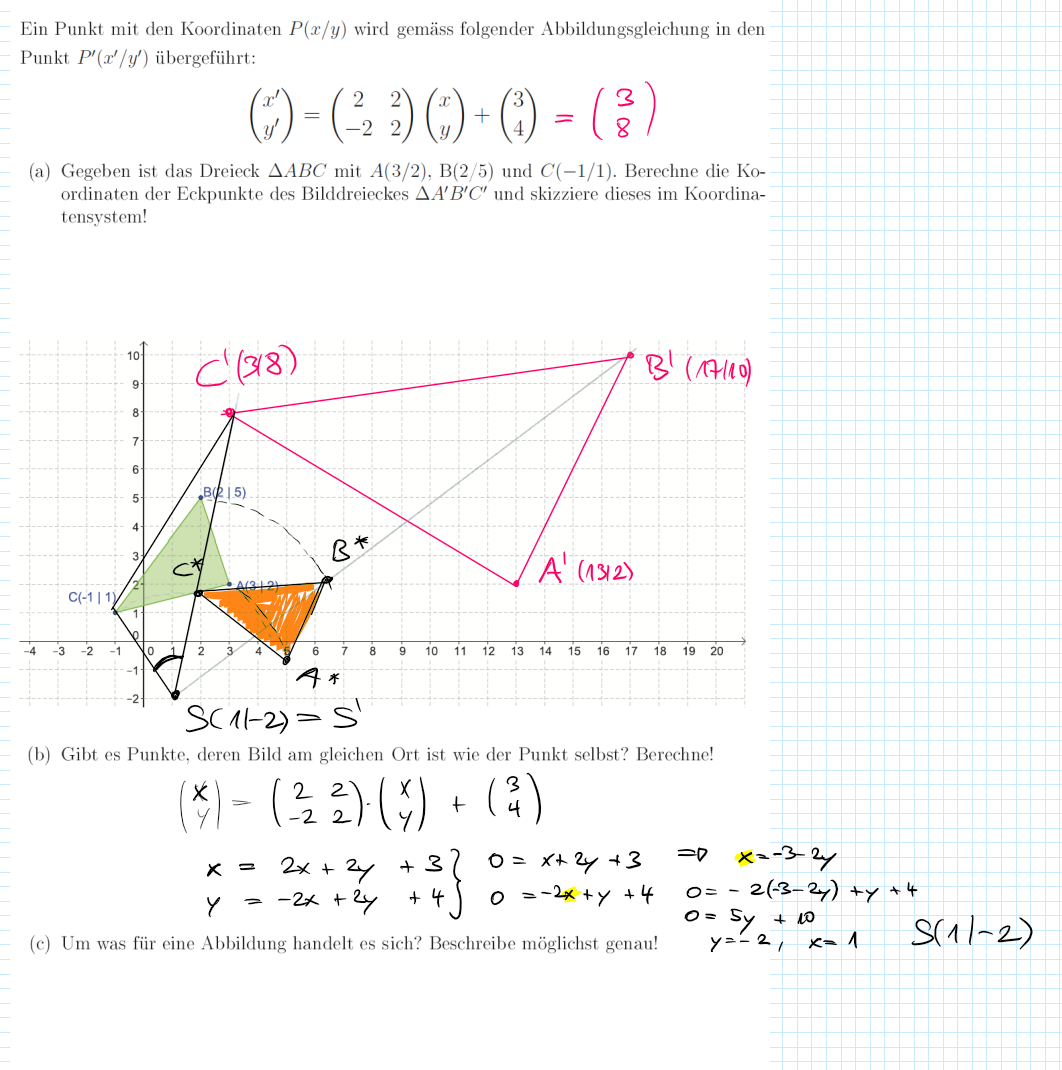 Ein Punkt mit den Koordinaten P(x/y) wird gemäss folgender Abbildungsgleichung in den
Punkt P′(x′/y′) überführt:
(x′ y′) = (2 2 −2 2) (x y) + (3 4) = (3 8)
(a) Gegeben ist das Dreieck ΔABC mit A(3/2), B(2/5) und C(−1/1). Berechne die Ko-
ordinaten der Eckpunkte des Bilddreieckes ΔA′B′C′ und skizziere dieses im Koordina-
tensystem!
C'(3|8)
B' (17|10)
A' (13|2)
B(2 | 5)
A(3 | 2)
C(-1 | 1)
C*
B*
A*
10
9
8
7
6
5
4
3
2
1
0
−1
−2
−4 −3 −2 −1 0 1 2 3 4 5 6 7 8 9 10 11 12 13 14 15 16 17 18 19 20
S(1|-2) = S'
(b) Gibt es Punkte, deren Bild am gleichen Ort ist wie der Punkt selbst? Berechne!
(x y) = (2 2 -2 2) · (x y) + (3 4)
x = 2x + 2y + 3 } 0 = x + 2y + 3 => x = -3 - 2y
y = -2x + 2y + 4 } 0 = -2x + y + 4 0 = - 2(-3-2y) + y + 4
0 = 5y + 10
y = -2, x = 1 S(1|-2)
(c) Um was für eine Abbildung handelt es sich? Beschreibe möglichst genau!